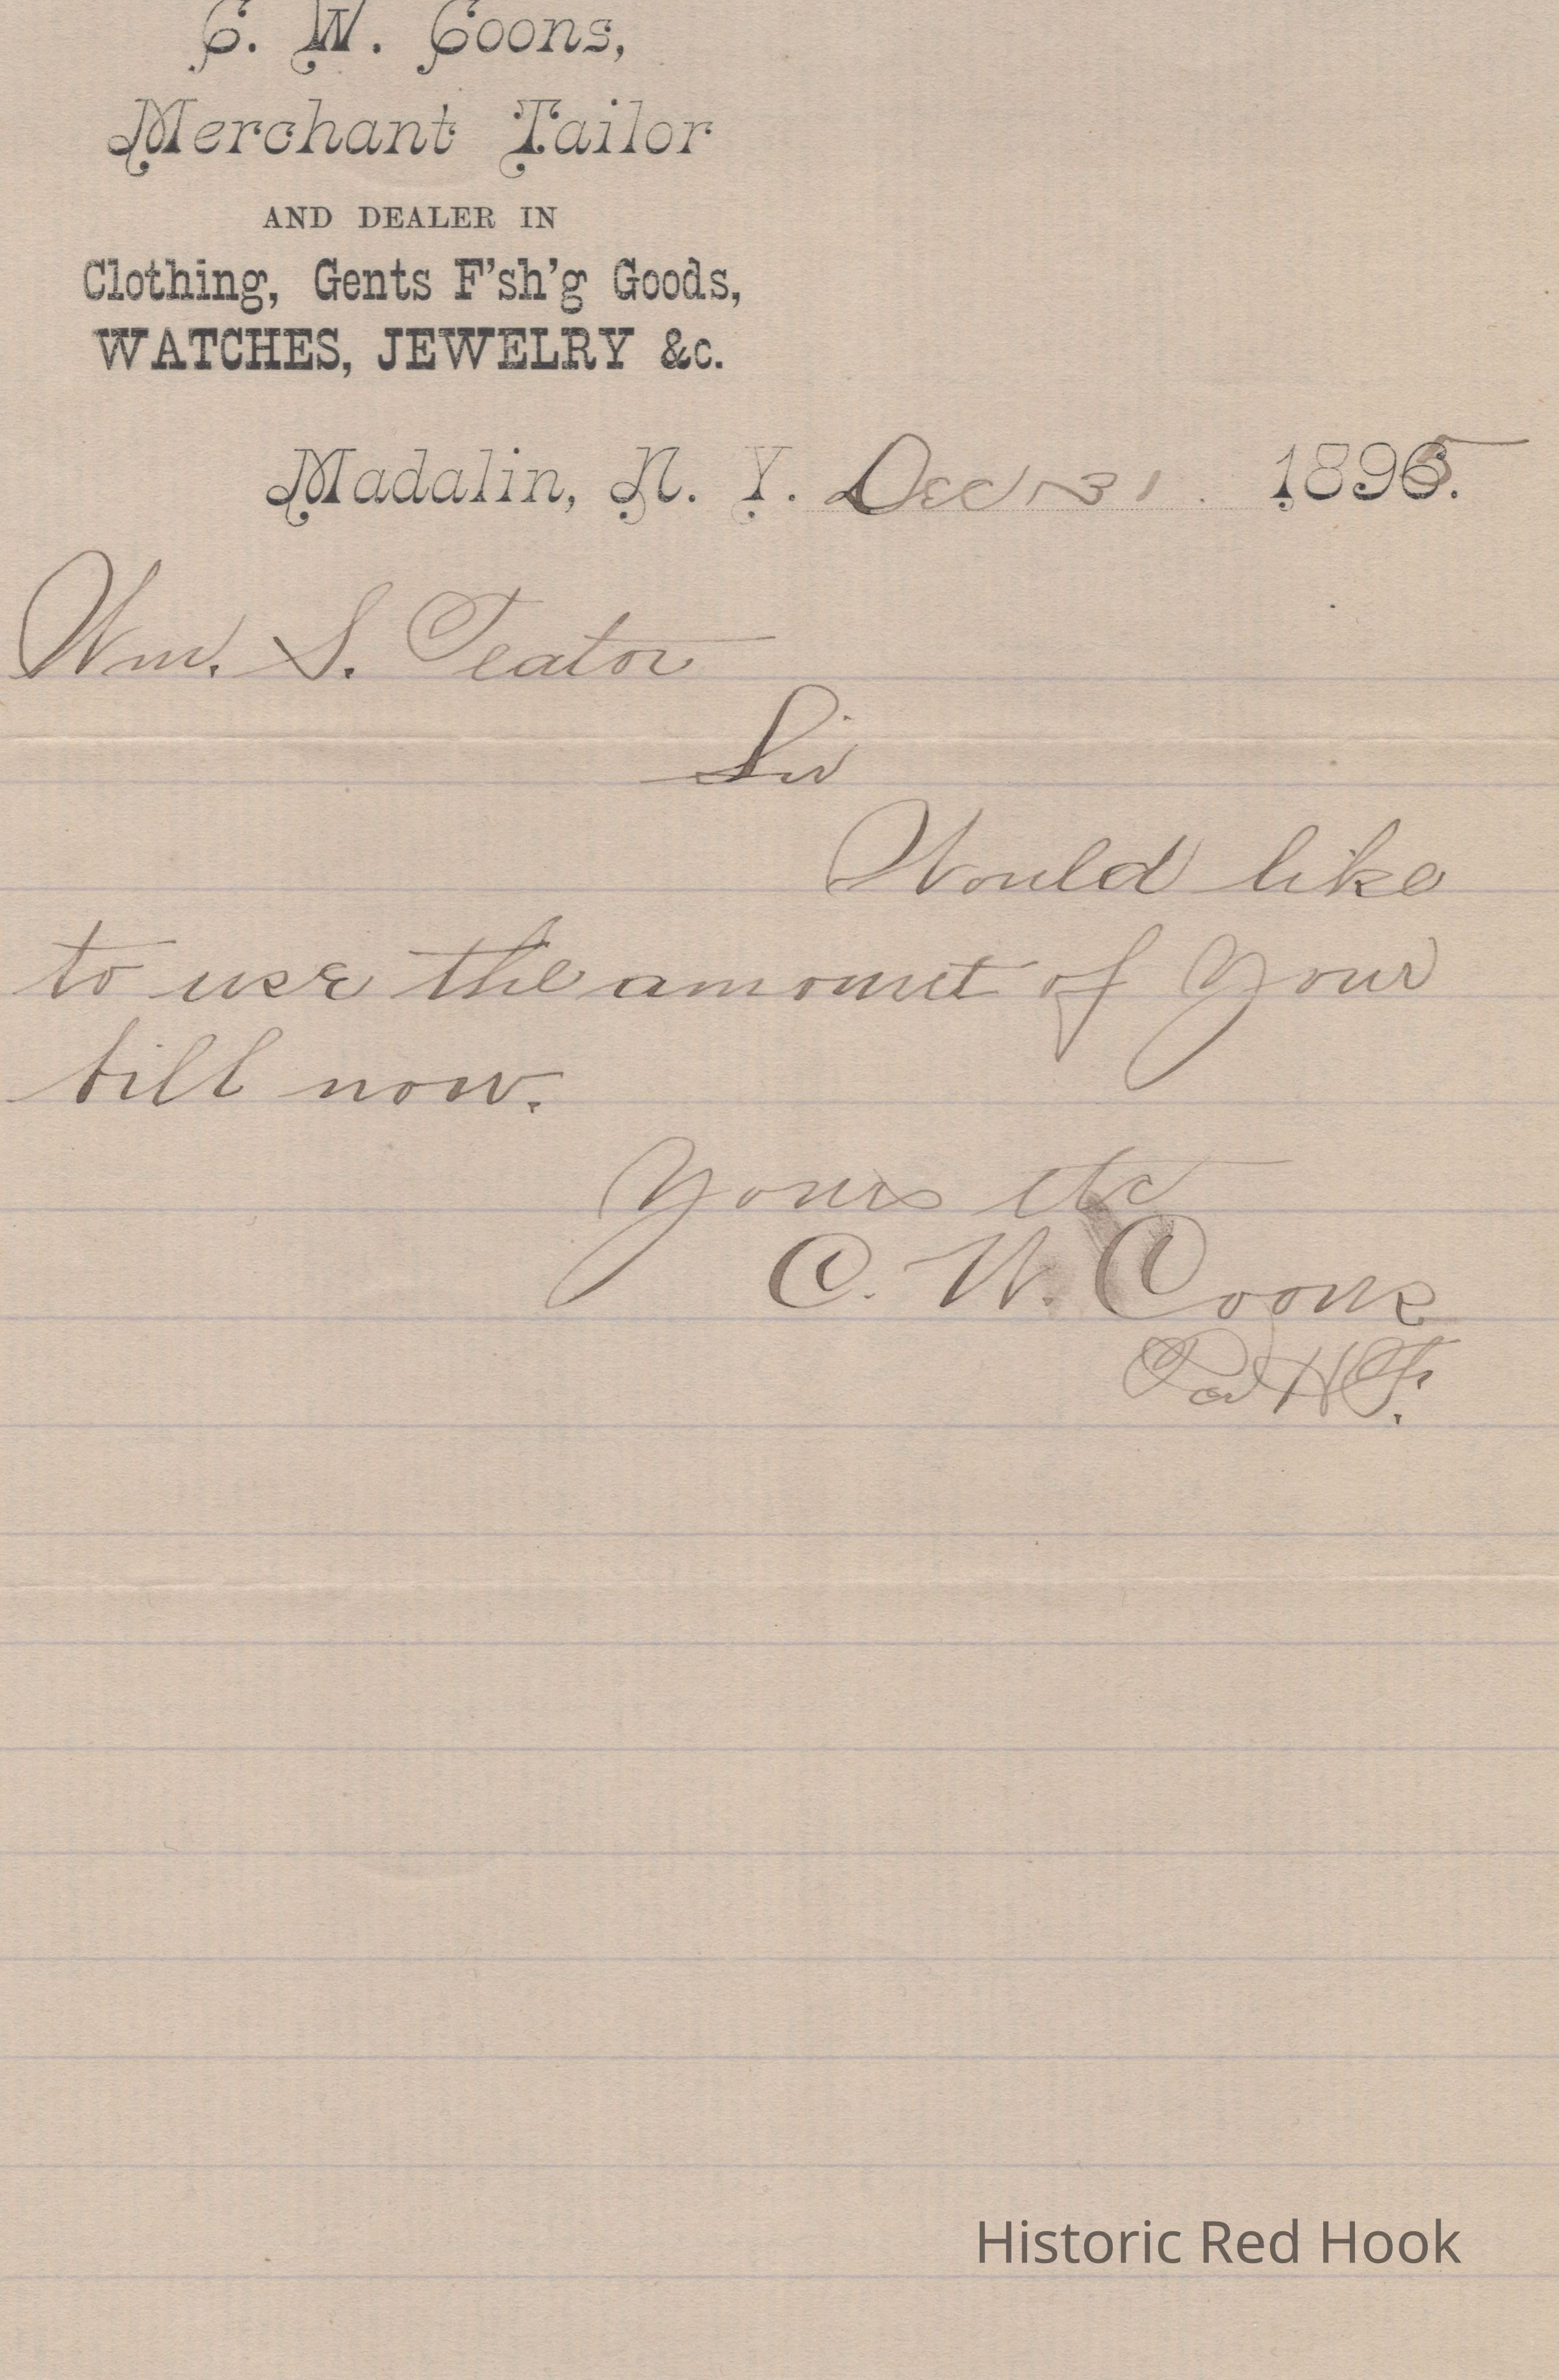 C. W. Coons,
Merchant Tailor
AND DEALER IN
Clothing, Gents F'sh'g Goods,
WATCHES, JEWELRY &c.
Madalin, N. Y. Dec 31. 1895.
Wm. S. Teator
Sir
Would like
to use the amount of your
bill now.
Yours etc
C. W. Coons
Historic Red Hook